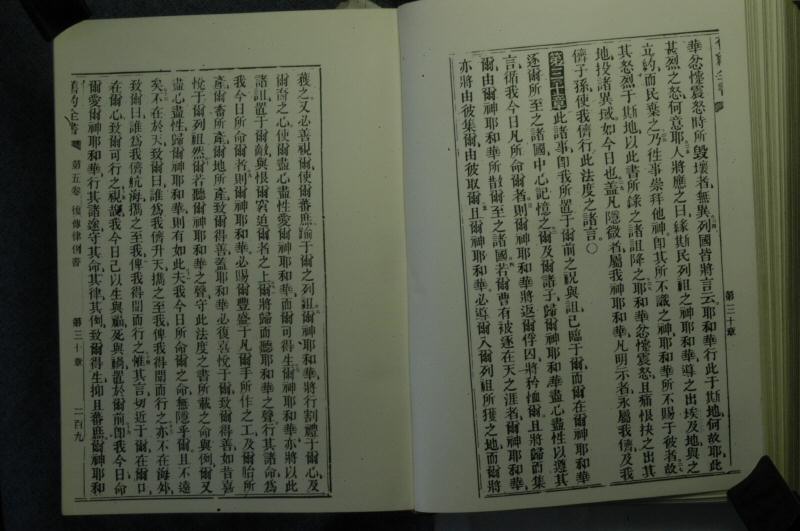 華忿懥震怒時所毀壞者、無異列國皆將言云、耶和華行此于斯地何故耶、此
甚烈之怒何意耶、人將應之曰、緣斯民列祖之神耶和華導之出埃及地與之
立約、而民棄之、乃徃事崇拜他神、卽其所不識之神耶和華所不賜于彼者、故
其怒烈于斯地、以此書所錄之諸詛降之、耶和華忿懥震怒、且痛恨抉之出其
地、投諸異域、如今日也、盖凡隱微者屬我神耶和華、凡明示者永屬我儕及我
儕子孫、使我儕行此法度之諸言、○
第三十章 此諸事、卽我所置于爾前之祝與詛、已臨于爾、而爾在爾神耶和華
逐爾所至之諸國中、心記憶之、爾及爾諸子歸爾神耶和華、盡心盡性、以遵其
言、循我今日凡所命爾者、則爾神耶和華將返爾俘囚、將矜恤爾、且將歸而集
爾、由爾神耶和華所散爾至之諸國、若爾曹有被逐在天之涯者、爾神耶和華
亦將由彼集爾、由彼取爾、且爾神耶和華必導爾入爾列祖所獲之地、而爾將
第三十章
獲之、又必善視爾、使爾蕃庶踰于爾之列祖、爾神耶和華將行割禮于爾心、及
爾裔之心、使爾盡心盡性、愛爾神耶和華、而爾可得生、爾神耶和華亦將以此
諸詛置于爾敵與恨爾窘迫爾者之上、爾將歸而聽耶和華之聲、行其諸命、爲
我今日所命爾者、則爾神耶和華必賜爾豐盛于凡爾手所作之工、及爾胎所
產、爾畜所產、爾地所產、致爾得善、蓋耶和華必復喜悅于爾、致爾得善、如昔喜
悅于爾列祖然、爾若聽爾神耶和華之聲、守此法度之書所載之命與例、爾又
盡心盡性歸爾神耶和華、則有如此、夫我今日所命爾之命、無隱乎爾、且不遠
矣、不在於天、致爾曰、誰爲我儕升天、攜之至我、俾我得聞而行之、亦不在海外、
致爾曰、誰爲我儕航海攜之至我、俾我得聞而行之、惟其言切近于爾、在爾口、
在爾心、致爾可行之、視哉、我今日已以生與福、死與禍、置於爾前、卽我今日命
爾愛爾神耶和華、行其諸途、守其命、其律、其例、致爾得生、抑且蕃庶、爾神耶和
舊約全書 第五卷 復傳律例書 第三十章 二百九